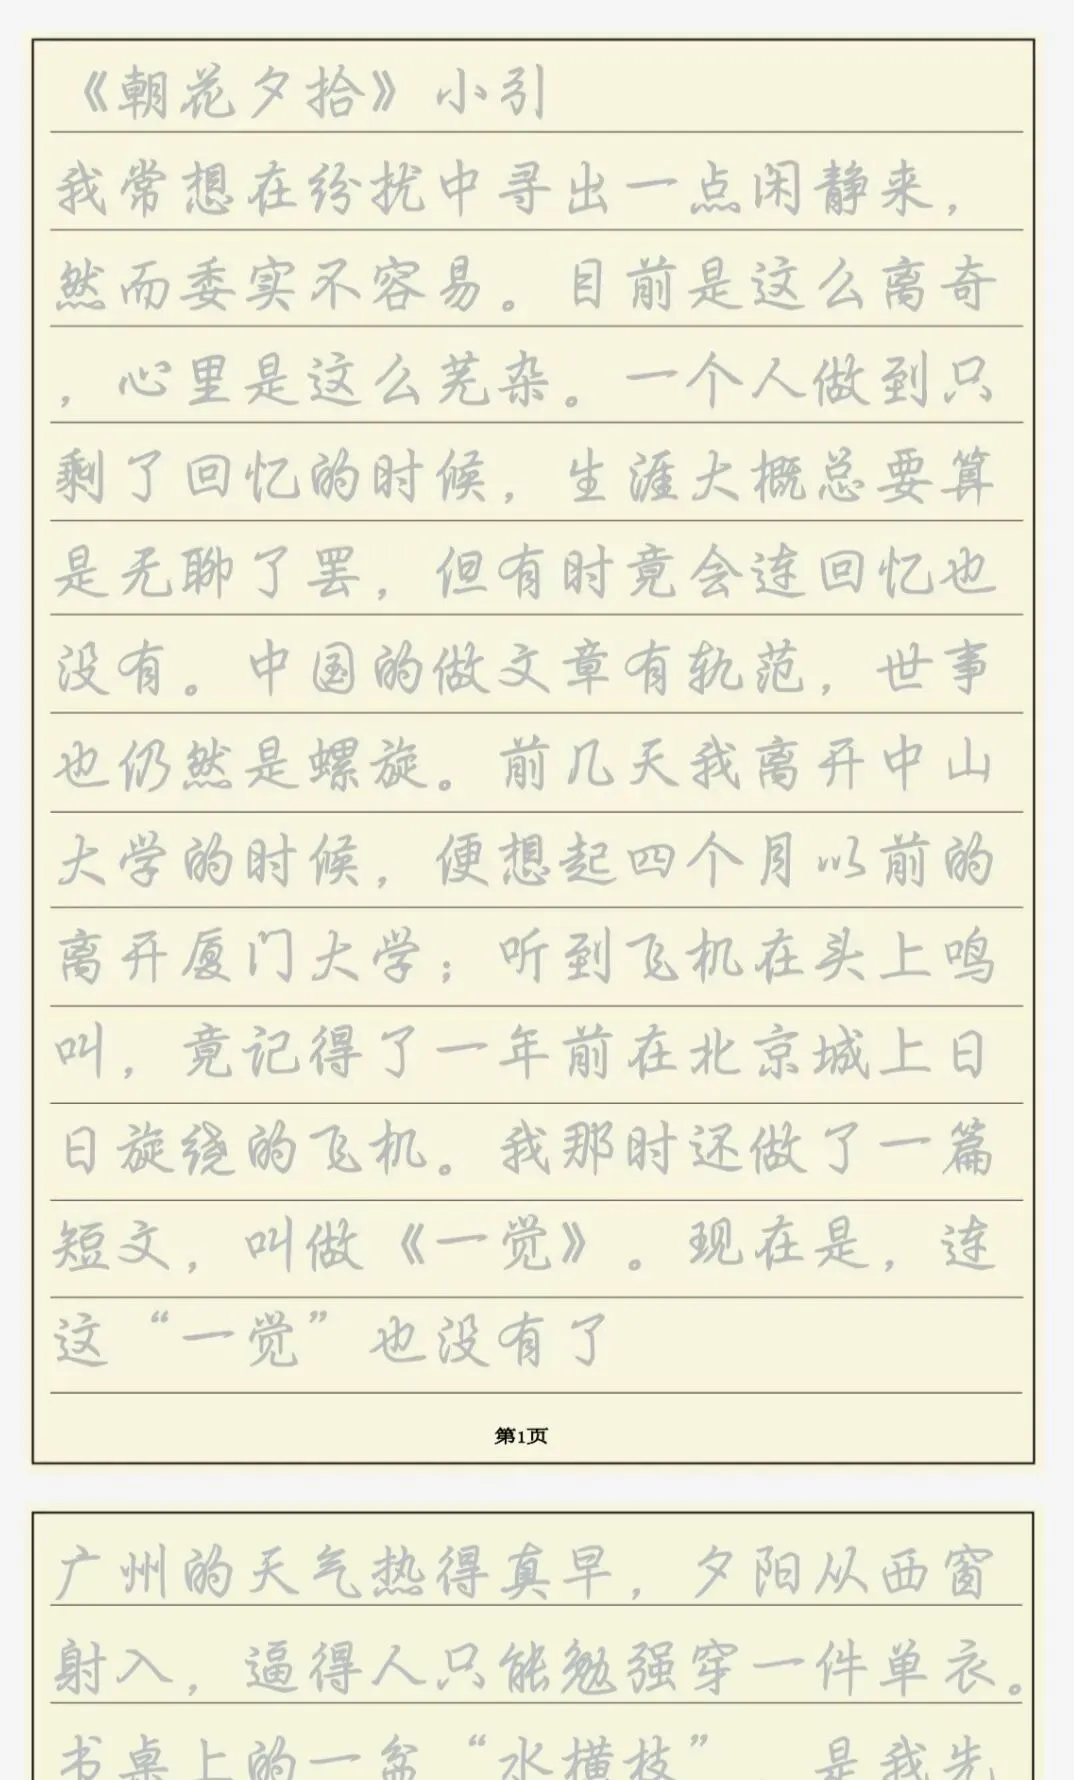 《朝花夕拾》小引
我常想在纷扰中寻出一点闲静来，
然而委实不容易。目前是这么离奇
，心里是这么芜杂。一个人做到只
剩了回忆的时候，生涯大概总要算
是无聊了罢，但有时竟会连回忆也
没有。中国的做文章有轨范，世事
也仍然是螺旋。前几天我离开中山
大学的时候，便想起四个月以前的
离开厦门大学；听到飞机在头上鸣
叫，竟记得了一年前在北京城上日
日旋绕的飞机。我那时还做了一篇
短文，叫做《一觉》。现在是，连
这“一觉”也没有了
第1页
广州的天气热得真早，夕阳从西窗
射入，逼得人只能勉强穿一件单衣。
书桌上的一盆“水横枝”，是我先